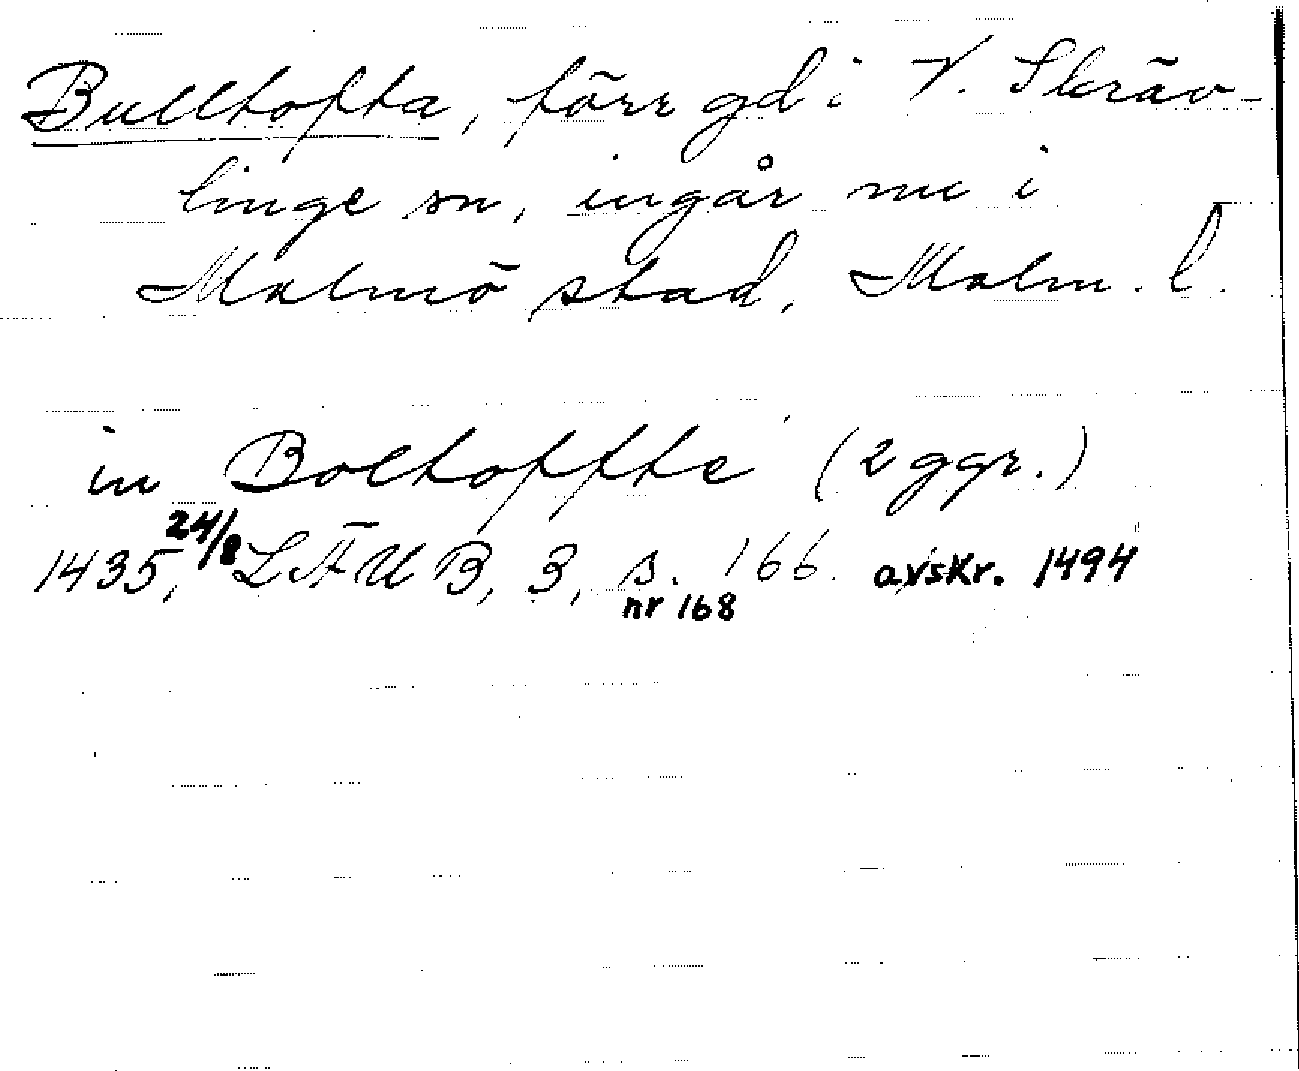 Bulltofta, förr gd i V. Skräv-
linge sn, ingår nu i
Malmö stad, Malm. l.
in Boltoffte (2 ggr.)
1435, 24/8 LÄUB, 3, s. 166. avskr. 1494
nr 168